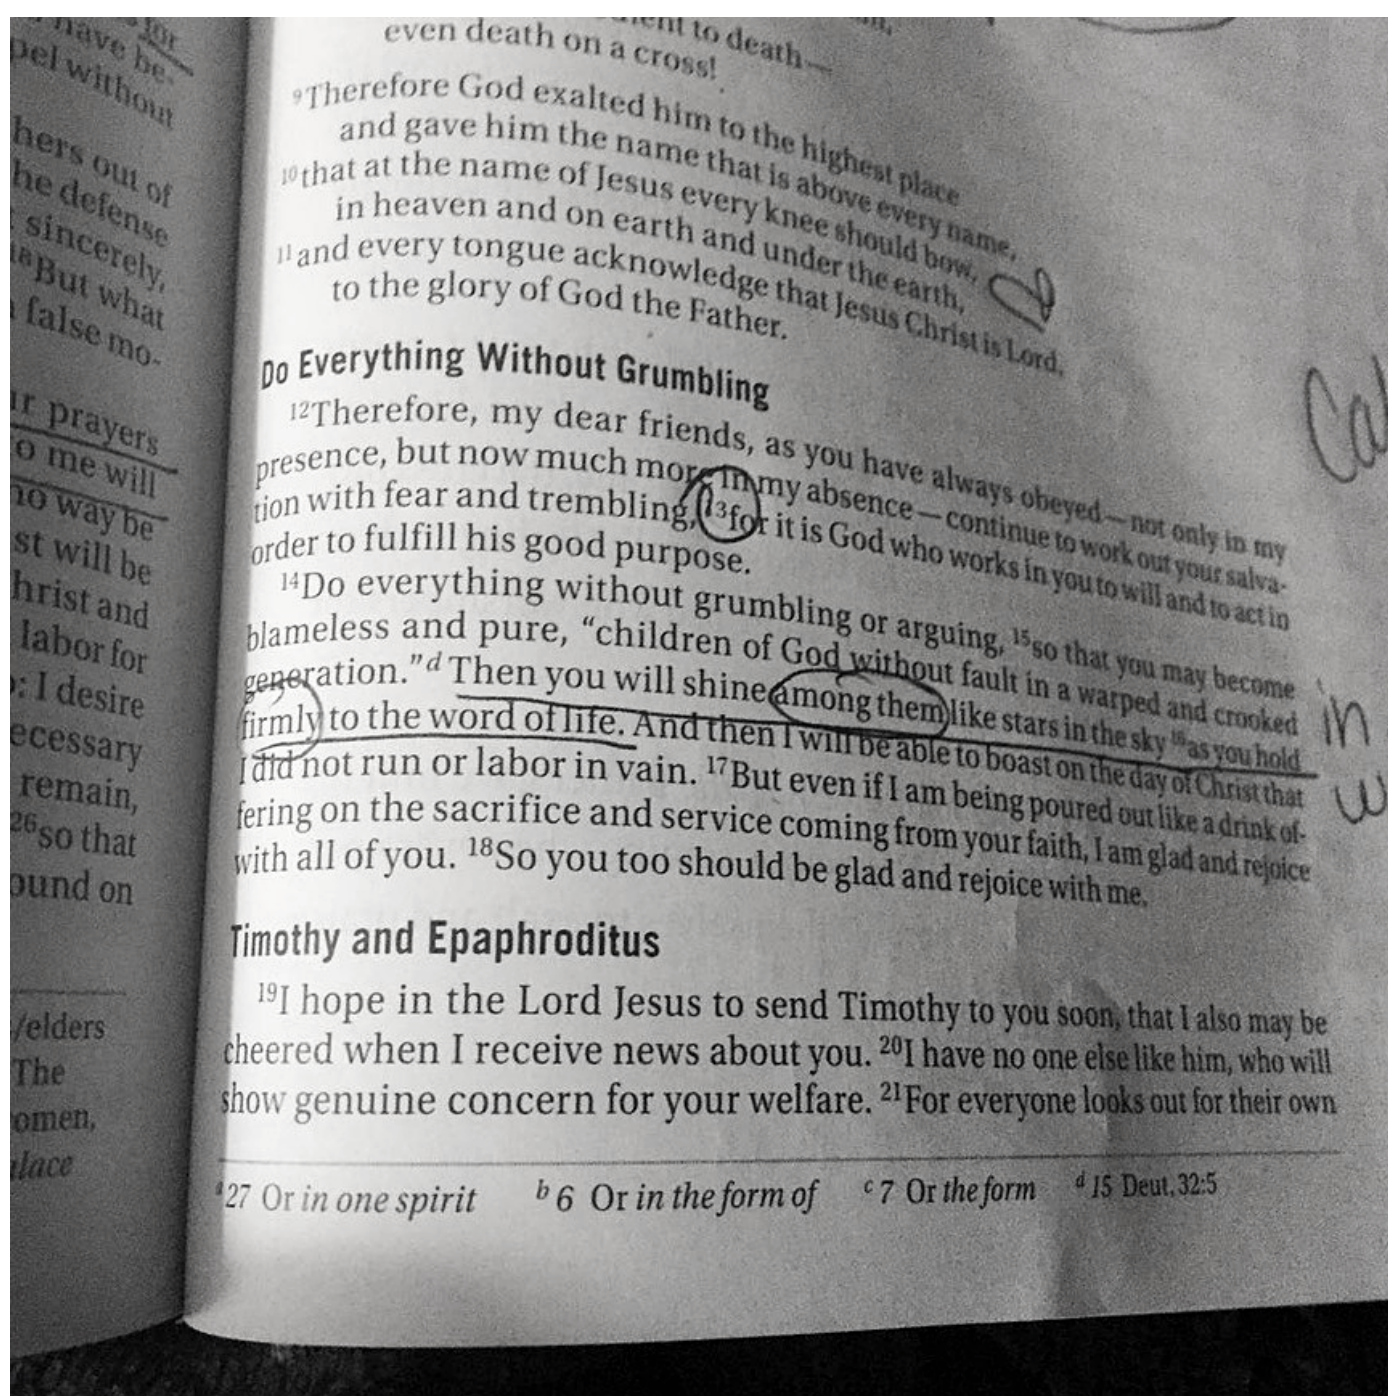 for
have be-
pel without
hers out of
he defense
sincerely,
But what
false mo-
r prayers
o me will
no way be
st will be
hrist and
labor for
: I desire
ecessary
remain,
26so that
ound on
/elders
The
omen,
lace
ent to death—
even death on a cross!
9Therefore God exalted him to the highest place
and gave him the name that is above every name,
10that at the name of Jesus every knee should bow,
in heaven and on earth and under the earth,
11and every tongue acknowledge that Jesus Christ is Lord,
to the glory of God the Father.
Do Everything Without Grumbling
12Therefore, my dear friends, as you have always obeyed—not only in my
presence, but now much more in my absence—continue to work out your salva-
tion with fear and trembling, 13for it is God who works in you to will and to act in
order to fulfill his good purpose.
14Do everything without grumbling or arguing, 15so that you may become
blameless and pure, “children of God without fault in a warped and crooked
generation.”d Then you will shine among them like stars in the sky 16as you hold
firmly to the word of life. And then I will be able to boast on the day of Christ that
I did not run or labor in vain. 17But even if I am being poured out like a drink of-
fering on the sacrifice and service coming from your faith, I am glad and rejoice
with all of you. 18So you too should be glad and rejoice with me.
Timothy and Epaphroditus
19I hope in the Lord Jesus to send Timothy to you soon, that I also may be
cheered when I receive news about you. 20I have no one else like him, who will
show genuine concern for your welfare. 21For everyone looks out for their own
a 27 Or in one spirit b 6 Or in the form of c 7 Or the form d 15 Deut. 32:5
Cal
in
w